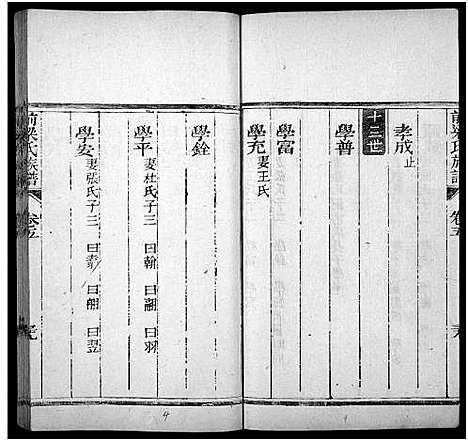 前梁氏族譜 卷五
孝成 止
十三世
學普
學富
學充 妻王氏
學銓
學平 妻杜氏子三 曰翰 曰翮 曰羽
學安 妻張氏子三 曰翥 曰翩 曰翌
前梁氏族譜 卷五
4